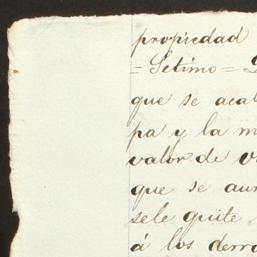 propiedad
= Setimo =
que se acab
pa y la m
valor de v
que se aum
sele quite
á los derro